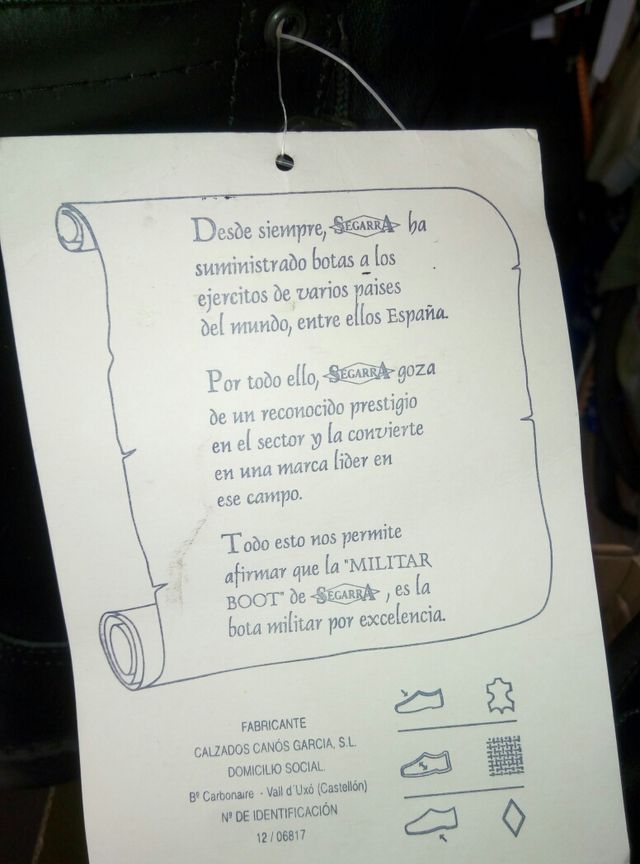 Desde siempre, SEGARRA ha
suministrado botas a los
ejercitos de varios paises
del mundo, entre ellos España.
Por todo ello, SEGARRA goza
de un reconocido prestigio
en el sector y la convierte
en una marca lider en
ese campo.
Todo esto nos permite
afirmar que la "MILITAR
BOOT" de SEGARRA, es la
bota militar por excelencia.
FABRICANTE
CALZADOS CANÓS GARCIA, S.L.
DOMICILIO SOCIAL.
Bº Carbonaire - Vall d´Uxó (Castellón)
Nº DE IDENTIFICACIÓN
12 / 06817